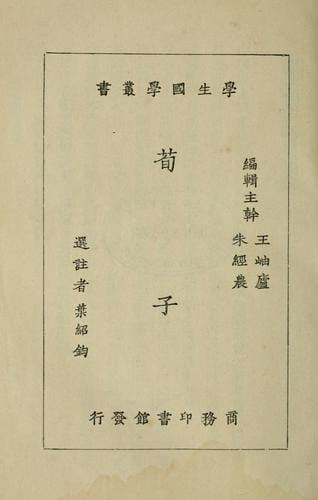 學生國學叢書
編輯主幹
王岫廬
朱經農
荀子
選註者葉紹鈞
商務印書館發行